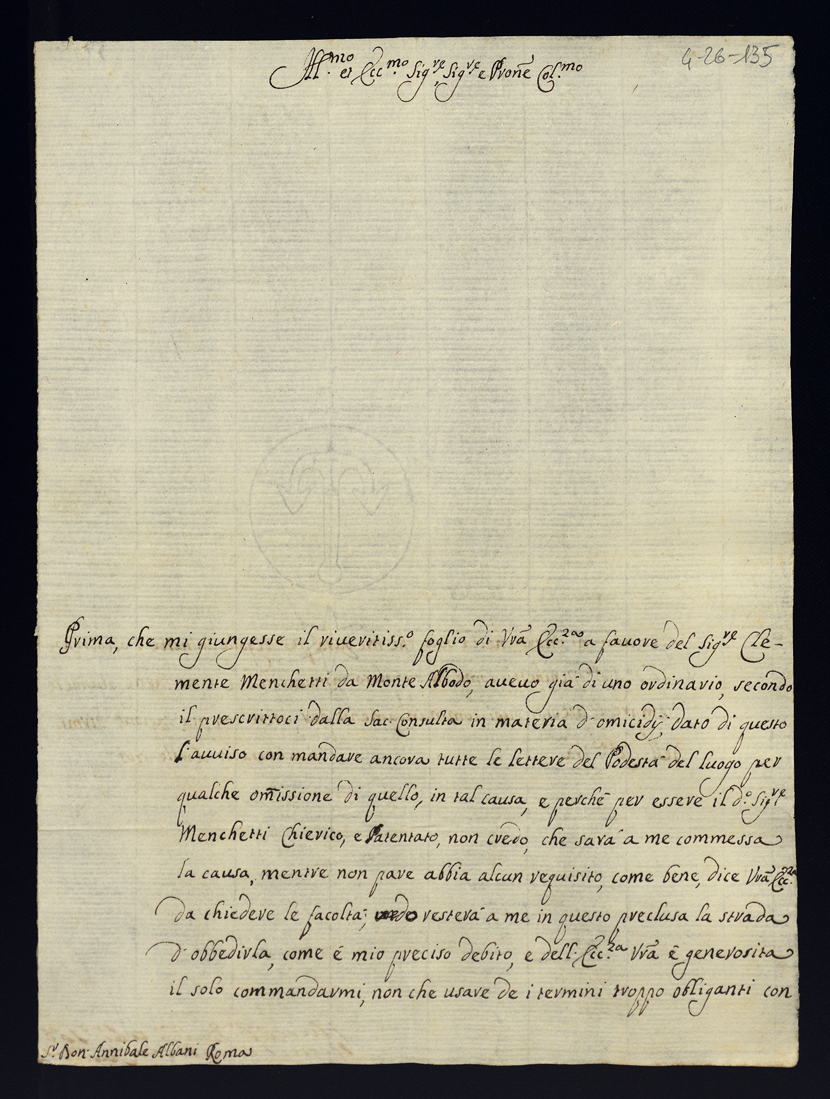 4-26-135
Ill.mo et Ecc.mo Sig.re Sig.re e Prone Col.mo
Prima, che mi giungesse il riveritiss.o foglio di Vrã Ecc.za a favore del Sig.re Cle-
mente Menchetti da Monte Albodo, avevo già di uno ordinario, secondo
il prescrittoci dalla Sac. Consulta in materia d'omicidÿ, dato di questo
l'avviso con mandare ancora tutte le lettere del Podestà del luogo per
qualche om̃issione di quello, in tal causa, e perche per essere il d.o Sig.re
Menchetti Chierico, e Patentato, non credo, che sarà a me commessa
la causa, mentre non pare abbia alcun requisito, come bene, dice Vrã Ecc.za
da chiedere le facoltà; resterà a me in questo preclusa la strada
d'obbedirla, come é mio preciso debito, e dell'Ecc.za Vrã é generosita
il solo commandarmi, non che usare de i termini troppo obliganti con
S.r Don Annibale Albani Roma